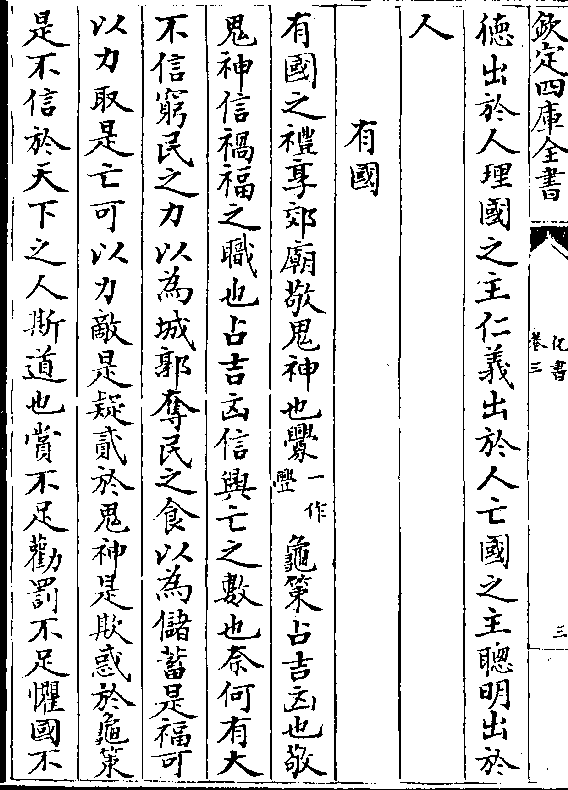 欽定四庫全書
化書
卷三
三
徳出於人理國之主仁義出於人亡國之主聰明出於
人
有國
有國之禮享郊廟敬鬼神也釁一作豐龜策占吉凶也敬
鬼神信禍福之職也占吉凶信興亡之數也奈何有大
不信窮民之力以為城郭奪民之食以為儲蓄是福可
以力取是亡可以力敵是疑貳於鬼神是欺惑於龜策
是不信於天下之人斯道也賞不足勸罰不足懼國不